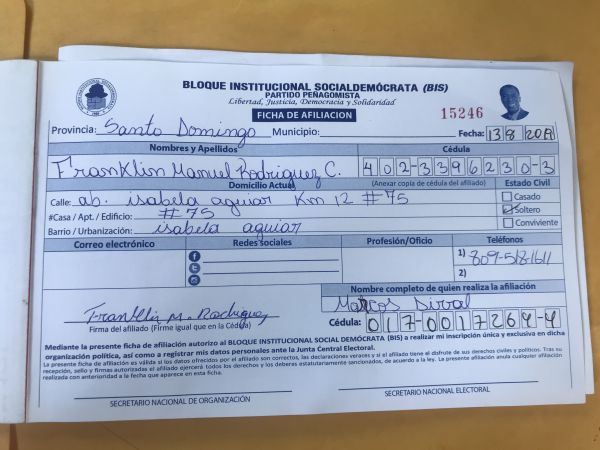 BLOQUE INSTITUCIONAL SOCIALDEMÓCRATA (BIS)
PARTIDO PEÑAGOMISTA
Libertad, Justicia, Democracia y Solidaridad
FICHA DE AFILIACION
15246
Provincia: Santo Domingo Municipio: Fecha: 13 8 2019
Nombres y Apellidos Cédula
Franklin Manuel Rodriguez C. 402-3396230-3
Domicilio Actual (Anexar copia de cédula del afiliado) Estado Civil
Calle: ab. isabela aguiar Km 12 #75 Casado
#Casa / Apt. / Edificio: #75 Soltero
Barrio / Urbanización: isabela aguiar Conviviente
Correo electrónico Redes sociales Profesión/Oficio Teléfonos
1) 809-518-1611
2)
Nombre completo de quien realiza la afiliación
Marcos
Franklin M. Rodriguez
Firma del afiliado (Firme igual que en la Cédula) Cédula: 017-0017264-4
Mediante la presente ficha de afiliación autorizo al BLOQUE INSTITUCIONAL SOCIAL DEMÓCRATA (BIS) a realizar mi inscripción única y exclusiva en dicha
organización política, así como a registrar mis datos personales ante la Junta Central Electoral.
La presente ficha de afiliación es válida si los datos ofrecidos por el afiliado son correctos, las declaraciones veraces y si el afiliado tiene el disfrute de sus derechos civiles y políticos. Tras su
recepción, sello y firmas autorizadas el afiliado ejercerá todos los derechos y los deberas estatutariamente sancionados, de acuerdo a la ley. La presente afiliación anula cualquier afiliación
realizada con anterioridad a la fecha que aparece en esta ficha.
SECRETARIO NACIONAL DE ORGANIZACIÓN SECRETARIO NACIONAL ELECTORAL